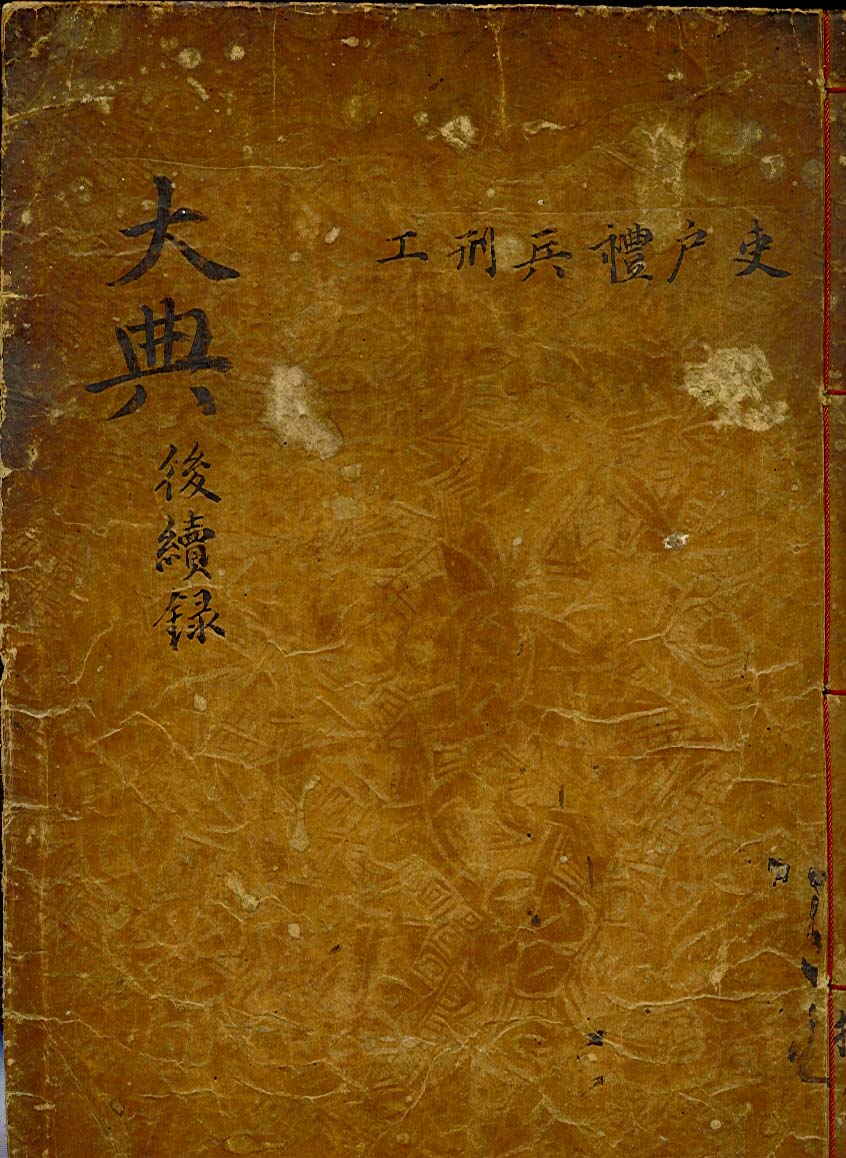 吏户禮兵刑工
大典後續録